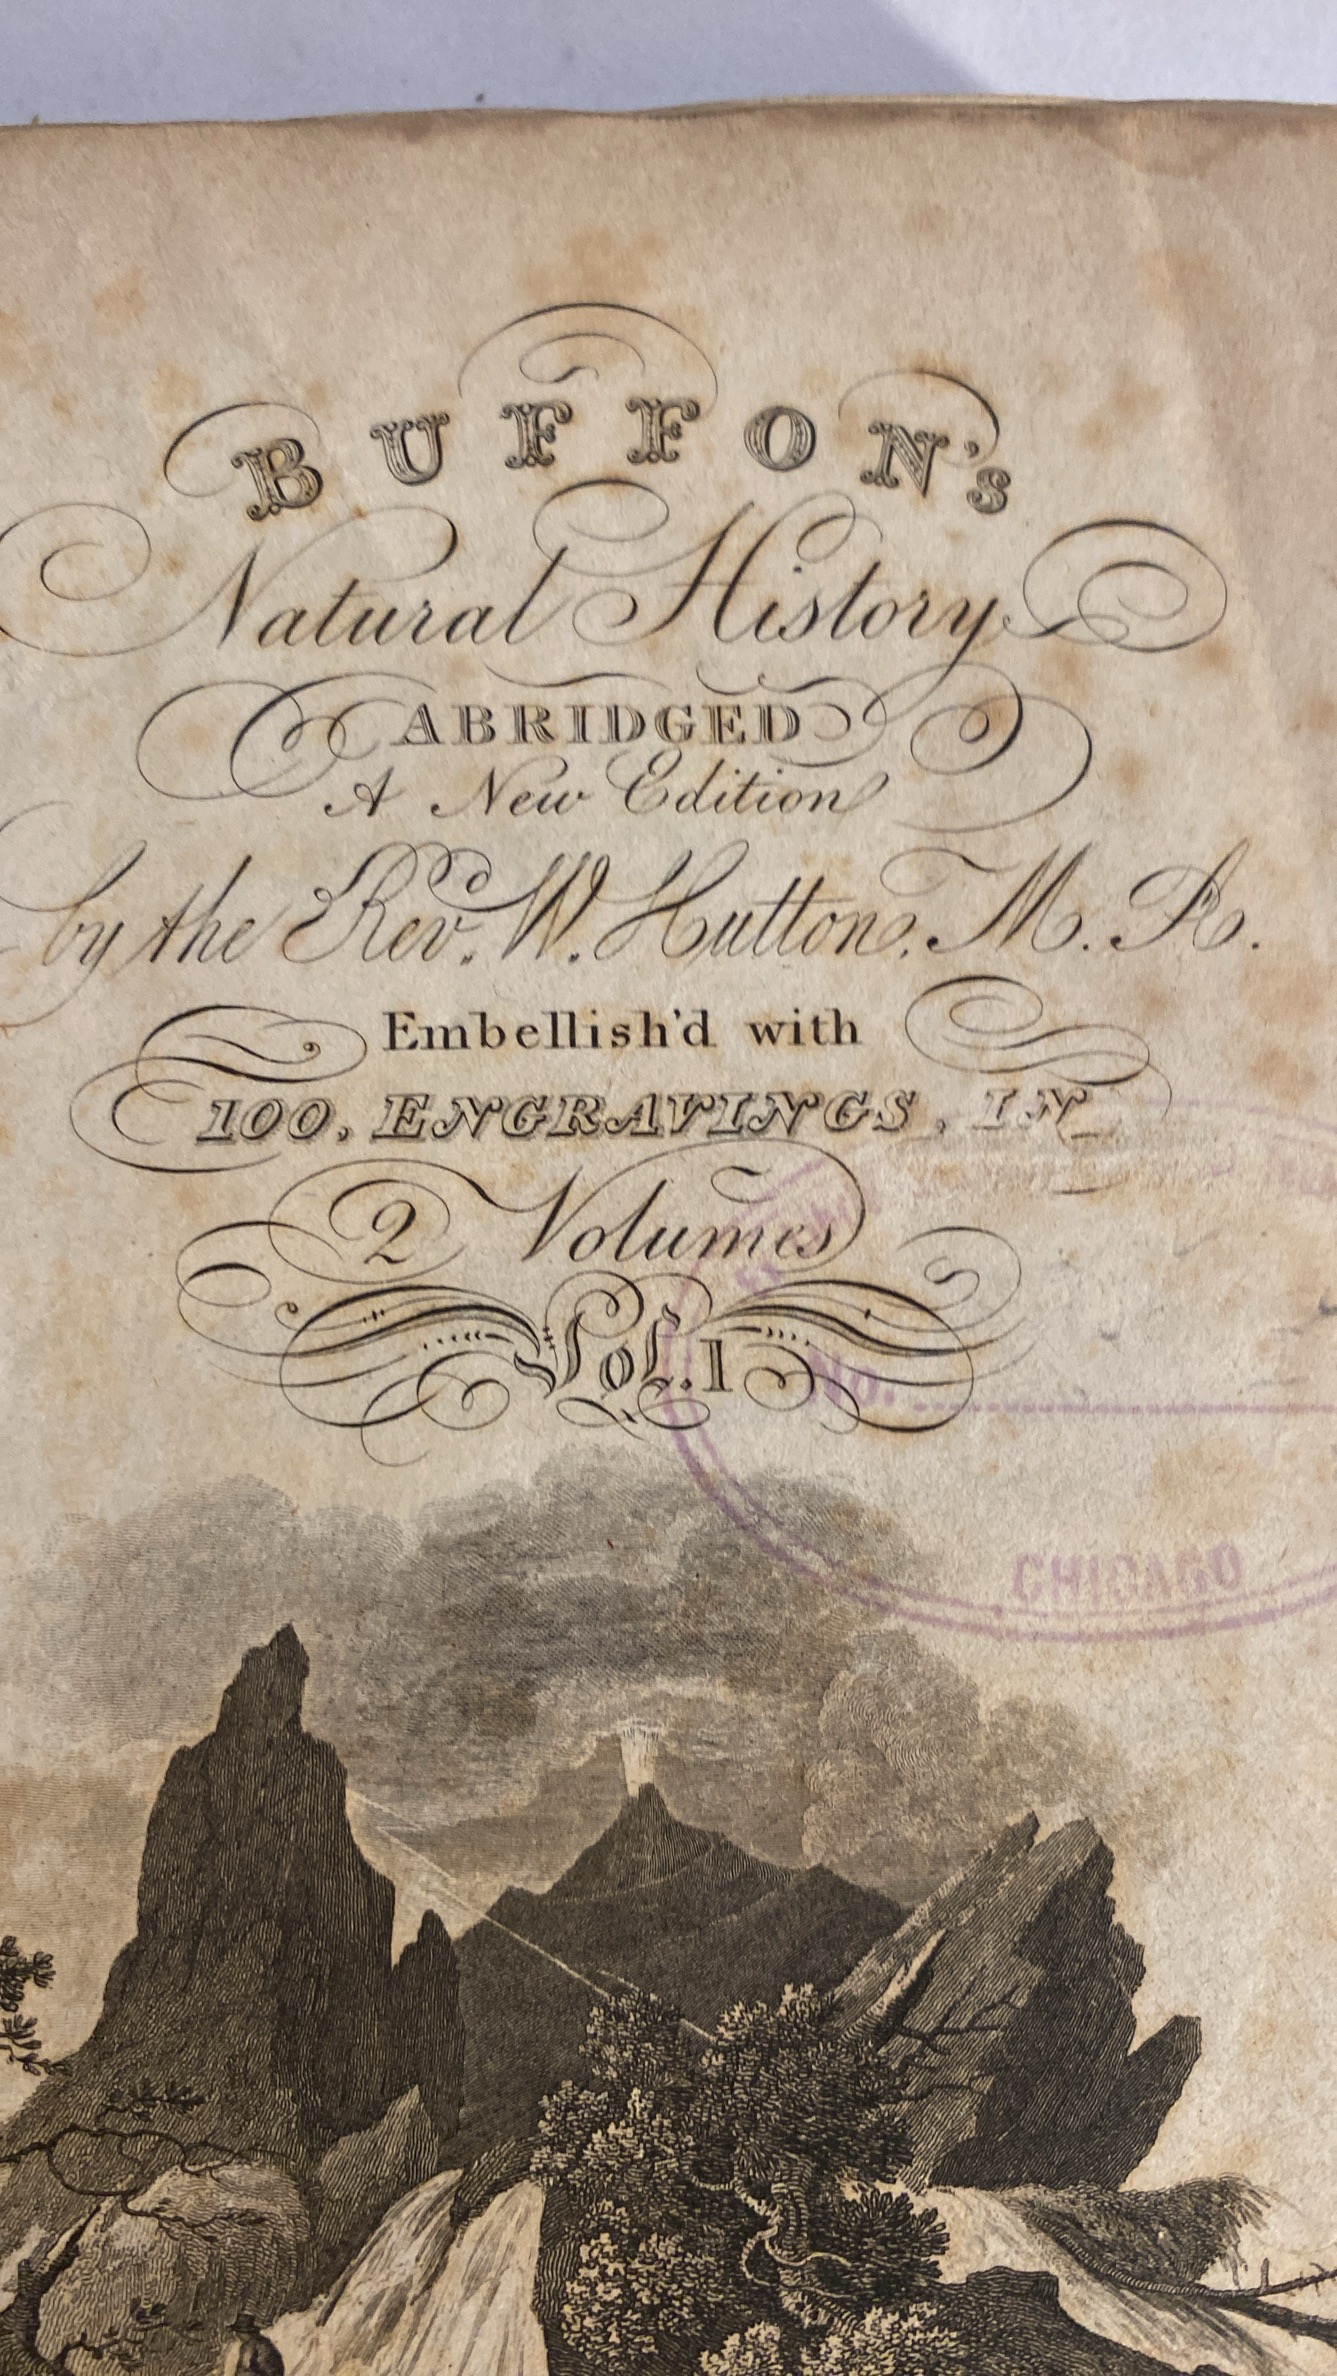 BUFFON's
Natural History
ABRIDGED
A New Edition
by the Revd. W. Hutton, M. A.
Embellish'd with
100, ENGRAVINGS, IN
2 Volumes
Vol. I
No.
CHICAGO